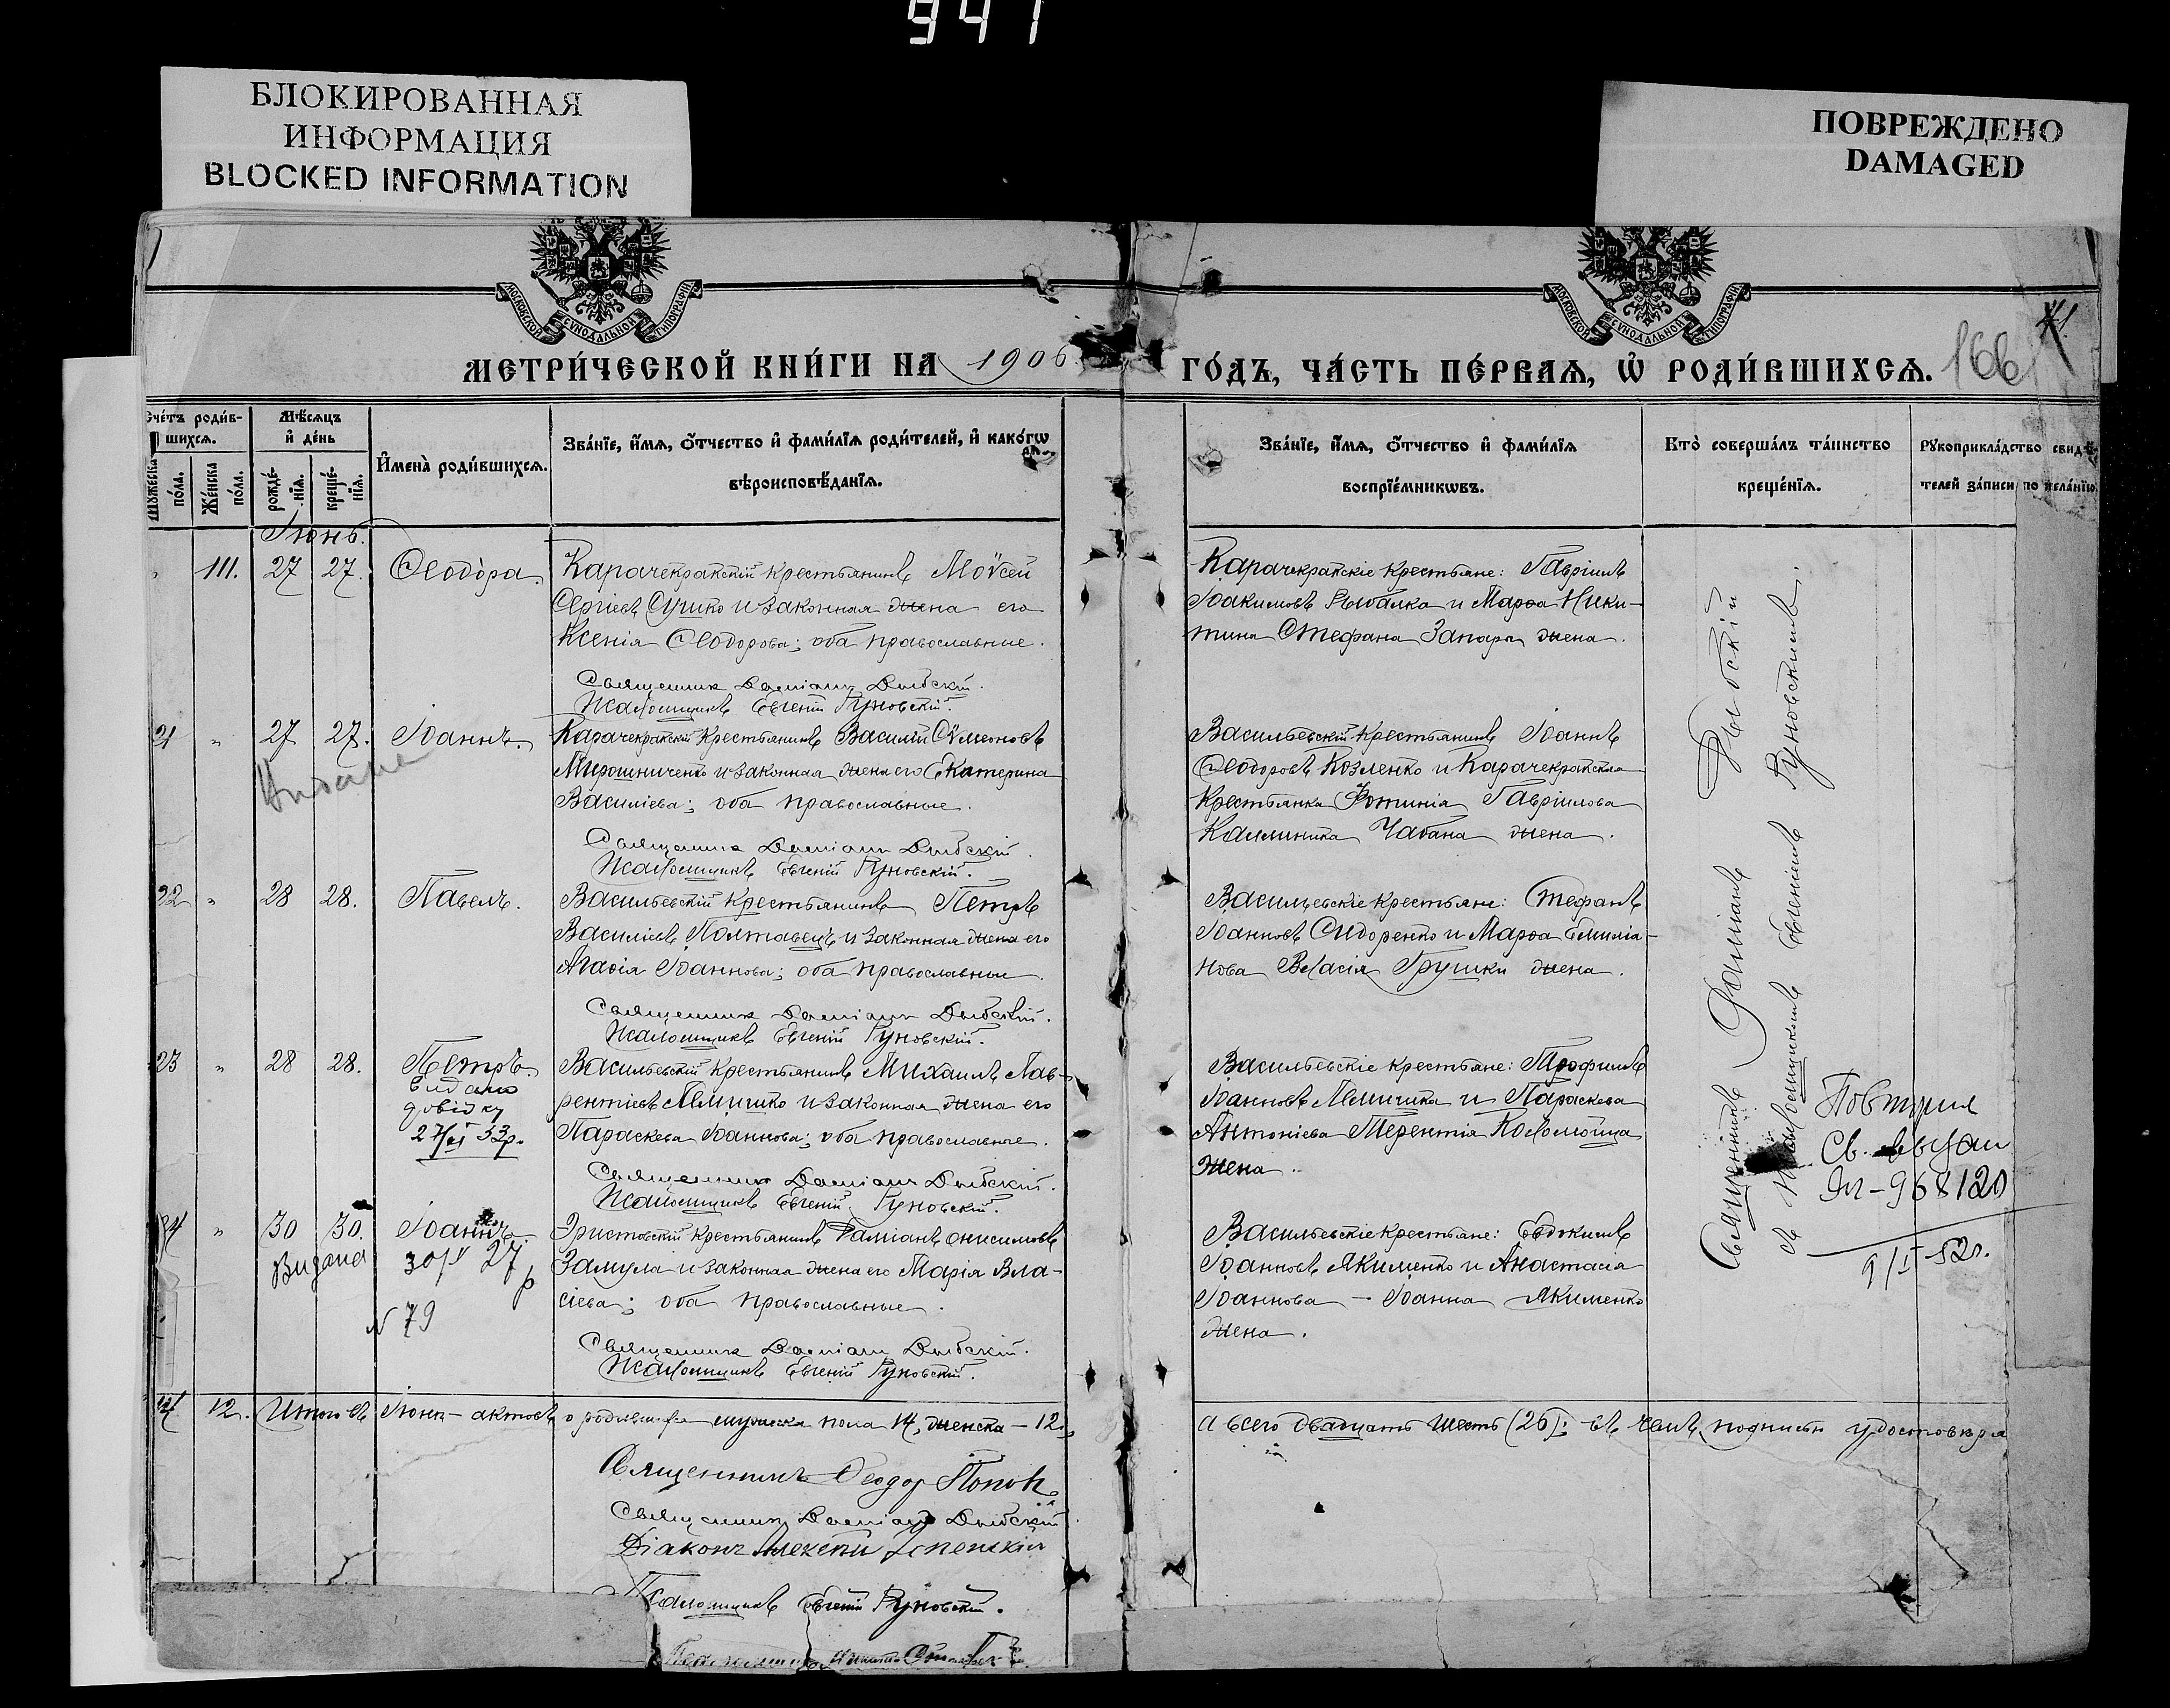 941
БЛОКИРОВАННАЯ
ИНФОРМАЦИЯ
BLOCKED INFORMATION
ПОВРЕЖДЕНО
DAMAGED
МОСКОВСКОЙ СУНОДАЛЬНОЙ ТИПОГРАФІИ
МОСКОВСКОЙ СУНОДАЛЬНОЙ ТИПОГРАФІИ
МЕТРИ́ЧЕСКОЙ КНИ́ГИ НА 1906
ГО́ДЪ, ЧА́СТЬ ПЕ́РВАѦ, Ѡ РОДИ́ВШИХСѦ. 166
Счётъ роди́в-
шихсѧ.
Мѣ́сѧцъ
и҆ де́нь
Мужеска
по́ла.
Же́нска
по́ла.
рожде́-
нїѧ.
креще́-
нїѧ.
И҆мена̀ роди́вшихсѧ.
Зва́нїе, и҆́мѧ, ѻ҆́тчество и҆ фами́лїѧ роди́телей, и҆ како́гѡ
вѣроисповѣ́данїѧ.
Зва́нїе, и҆́мѧ, ѻ҆́тчество и҆ фами́лїѧ
воспрїе́мникѡвъ.
Кто̀ соверша́лъ та́инство
креще́нїѧ.
Рꙋкоприкла́дство свидѣ́-
телей за́писи по жела́нїю
Іюнь.
111. 27 27. Ѳеодора.
Карачекракскій крестьянинъ Моѵсей
Сергіевъ Сушко и законная жена его
Ксенія Ѳеодорова; оба православные.
Священник Даміанъ Дыбскій.
Псаломщикъ Евгеній Руновскій.
Карачекракскіе крестьяне: Гавріилъ
Іоакимовъ Рыбалка и Марѳа Ники-
тина Стефана Запары жена.
21 " 27 27. Іоаннъ.
Видана
Карачекракскій крестьянинъ Василій Сѵмеоновъ
Мирошниченко и законная жена его Екатерина
Василіева; оба православные.
Священник Даміанъ Дыбскій.
Псаломщикъ Евгеній Руновскій.
Васильевскій крестьянинъ Іоаннъ
Ѳеодоровъ Козленко и Карачекракская
крестьянка Фотинія Гавріилова
Каллиника Чабана жена.
22 " 28 28. Павелъ.
Васильевскій крестьянинъ Петръ
Василіевъ Полтавецъ и законная жена его
Агаѳія Іоаннова; оба православные.
Священник Даміанъ Дыбскій.
Псаломщикъ Евгеній Руновскій.
Васильевскіе крестьяне: Стефанъ
Іоанновъ Сидоренко и Марѳа Емиліа-
нова Власія Грушки жена.
23 " 28 28. Петръ.
Видано
довідку
27/VI 33р.
Васильевскій крестьянинъ Михаилъ Лав-
рентіевъ и законная жена его
Параскева Іоаннова; оба православные.
Священник Даміанъ Дыбскій.
Псаломщикъ Евгеній Руновскій.
Васильевскіе крестьяне: Трофимъ
Іоанновъ и Параскева
Антоніева Терентія Коломойца
жена.
" 30 30. Іоаннъ
Видана 30/V 27 р
N 79
Эристовскій крестьянинъ Даміанъ Онисимовъ
Замула и законная жена его Марія Вла-
сіева; оба православные.
Священник Даміанъ Дыбскій.
Псаломщикъ Евгеній Руновскій.
Васильевскіе крестьяне: Евдокимъ
Іоанновъ Якименко и Анастасія
Іоаннова - Іоанна Якименко
жена.
Священникъ Даміанъ Дыбскій
съ псаломщикомъ Евгеніемъ Руновскимъ.
Повторн
Св. выдан
968120
9/I-52г.
14 12. Итого въ Іюнѣ - актовъ о родившихся мужеска пола 14, женска - 12,
а всего двадцать шесть (26); въ чемъ подписью удостовѣряемъ
Священникъ Ѳеодор Попов
Священник Даміанъ Дыбскій
Діаконъ Алексѣй Успенскій
Псаломщикъ Евгеній Руновскій.